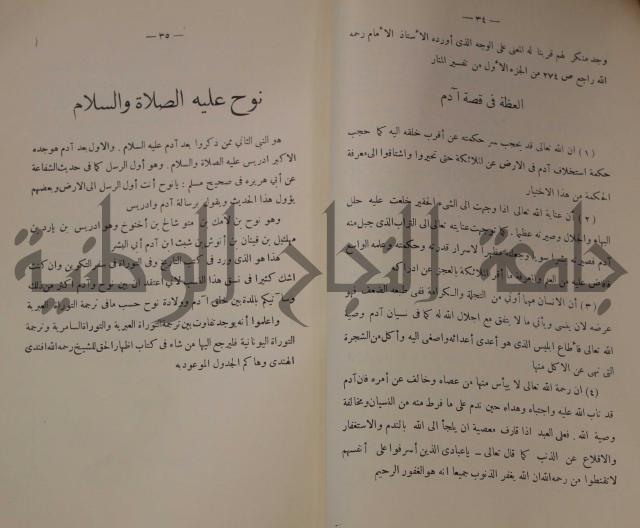 — ٣٤ —
وجد منكر لهم قربنا له المعنى على الوجه الذى أورده الأستاذ الأمام رحمه
الله راجع ص ٢٧٤ من الجزء الأول من تفسير المنار
العظة فى قصة آدم
(١) ان الله تعالى قد يحجب سر حكمته عن أقرب خلقه اليه كما حجب
حكمة استخلاف آدم فى الارض عن الملائكة حتى تحيروا واشتاقوا الى معرفة
الحكمة من هذا الاختيار
(٢) أن عناية الله تعالى اذا وجهت الى الشىء الحقير خلعت عليه حلل
البهاء والجلال وصيرته عظيما. كما توجهت عنايته تعالى الى التراب الذى جبل منه
آدم فصيرته بشرا سويا وجعلته مظهرا لاسرار قدرته وحكمته وعلمه الواسع
وأفاض عليه من العلم والمعرفة ما أقر الملائكة بالعجز عن ادراكه
(٣) أن الانسان مهما أوتى من التجلة والكرامة ففى طبعه الضعف فهو
عرضه لان ينسى ويأتى ما لا يتفق مع اجلال الله له كما فى نسيان آدم وصية
الله تعالى فأطاع ابليس الذى هو أعدى أعدائه واصغى اليه وأكل من الشجرة
التى نهى عن الاكل منها
(٤) ان رحمة الله تعالى لا ييأس منها من عصاه وخالف عن أمره فان آدم
قد تاب الله عليه واجتباه وهداه حين ندم على ما فرط منه من النسيان ومخالفة
وصية الله. فعلى العبد اذا قارف معصية ان يلجأ الى الله بالندم والاستغفار
والاقلاع عن الذنب كما قال تعالى ــ ياعبادى الذين أسرفوا على أنفسهم
لاتقنطوا من رحمه الله ان الله يغفر الذنوب جميعا انه هو الغفور الرحيم
— ٣٥ —
نوح عليه الصلاة والسلام
هو النبى الثانى ممن ذكروا بعد آدم عليه السلام. والاول بعد آدم هو جده
الاكبر ادريس عليه الصلاة والسلام. وهو أول الرسل كما فى حديث الشفاعة
عن أبى هريره فى صحيح مسلم : يانوح أنت أول الرسل الى الارض وبعضهم
يؤول هذا الحديث ويقول برسالة آدم وادريس
وهو نوح بن لامك بن متو شالح بن أخنوخ وهو ادريس بن يارد بن
مهلئيل بن قينان بن أنوش بن شيث ابن آدم أبى البشر
هذا هو الذى ورد فى كتب التاريخ وفى التوراة فى سفر التكوين وان كنت
اشك كثيرا فى نسق هذا النسب لانى أعتقد أن بين نوح وآدم أكثر من ذلك
وسآتيكم بالمدة بين خلق آدم وولادة نوح حسب ما فى ترجمة التوراة العبرية
واعلموا أنه يوجد تفاوت بين ترجمة التوراة العبرية والتوراة السامرية وترجمة
التوراة اليونانية فليرجع اليها من شاء فى كتاب اظهار الحق للشيخ رحمه الله افندى
الهندى وهاكم الجدول الموعود به
جامعة النجاح الوطنية